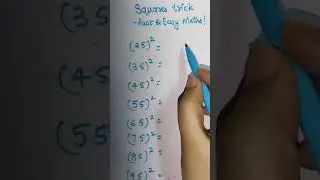 Squares trick
- Fast & Easy Maths!
(25)² =
(35)² =
(45)² =
(55)² =
(65)² =
(75)² =
(85)² =
(95)² =